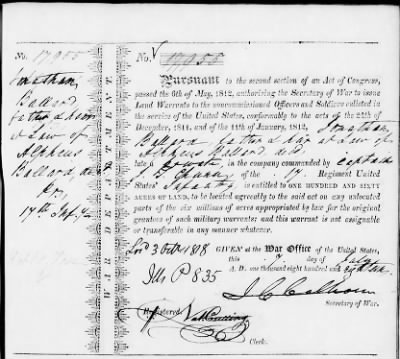 No. 17955
Jonathan
Ballard
father & heir
at Law of
Alpheus
Ballard dec
17th Inf.
WAR DEPARTMENT.
No. 17955
Pursuant to the second section of an Act of Congress,
passed the 6th of May, 1812, authorising the Secretary of War to issue
Land Warrants to the noncommissioned Officers and Soldiers enlisted in
the service of the United States, conformably to the acts of the 24th of
December, 1811, and of the 11th of January, 1812, Jonathan
Ballard father & heir at Law of
Alpheus Ballard dec
late a private in the company commanded by Captain
of the 17 Regiment United
States' Infantry is entitled to ONE HUNDRED AND SIXTY
ACRES OF LAND, to be located agreeably to the said act on any unlocated
parts of the six millions of acres appropriated by law for the original
grantees of such military warrants; and this warrant is not assignable
or transferable in any manner whatever.
3 Octr 1818 GIVEN at the War Office of the United States,
this 7 day of July
A. D. one thousand eight hundred and eighteen
Ills P 835
J C Calhoun
Secretary of War.
Registered
Clerk.